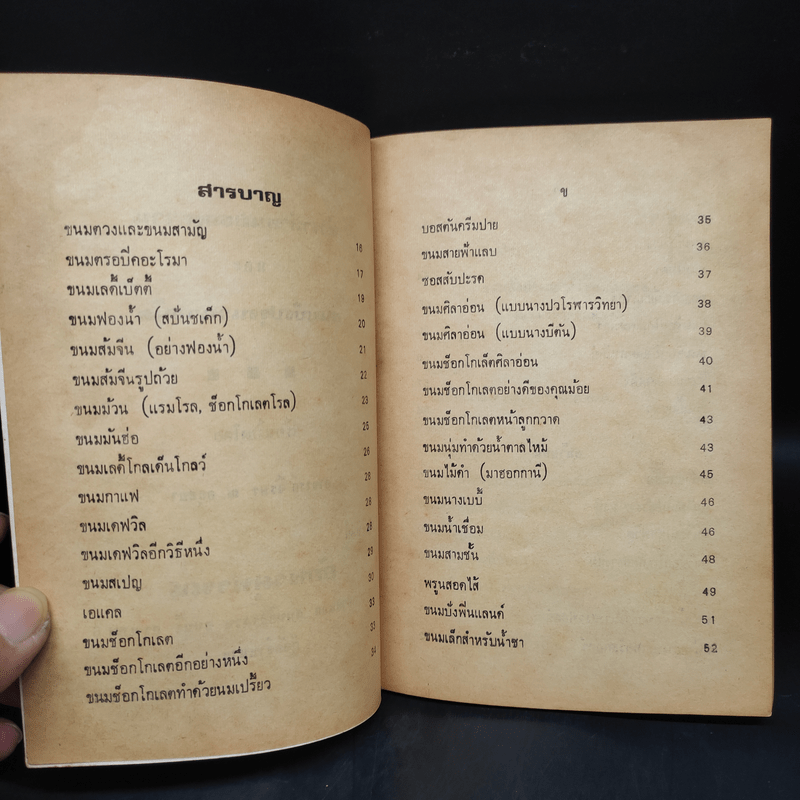 สารบาญ
ขนมตวงและขนมสามัญ 16
ขนมตรอปิคอะโรมา 17
ขนมเลดี้เบ็ตตี้ 19
ขนมฟองน้ำ (สปันชเค็ก) 20
ขนมส้มจีน (อย่างฟองน้ำ) 21
ขนมส้มจีนรูปถ้วย 22
ขนมม้วน (แรมโรล, ช็อกโกเลตโรล) 23
ขนมมันฮ่อ 25
ขนมเลดี้โกลเด็นโกลว์ 26
ขนมกาแฟ 28
ขนมเดฟวิล 28
ขนมเดฟวิลอีกวิธีหนึ่ง 28
ขนมสเปญ 29
เอแคล 30
ขนมช็อกโกเลต 33
ขนมช็อกโกเลตอีกอย่างหนึ่ง 33
ขนมช็อกโกเลตทำด้วยนมเปรี้ยว 34
ข
บอสตันครีมปาย 35
ขนมสายฟ้าแลบ 36
ซอสสับปะรด 37
ขนมศิลาอ่อน (แบบนางปวโรฬารวิทยา) 38
ขนมศิลาอ่อน (แบบนางบีตัน) 39
ขนมช็อกโกเล็ตศิลาอ่อน 40
ขนมช็อกโกเลตอย่างดีของคุณม้อย 41
ขนมช็อกโกเลตหน้าลูกกวาด 43
ขนมนุ่มทำด้วยน้ำตาลไหม้ 43
ขนมไม้ดำ (มาฮอกกานี) 45
ขนมนางเบบี้ 46
ขนมน้ำเชื่อม 46
ขนมสามชั้น 48
พรูนสอดไส้ 49
ขนมบั่งฟีนแลนด์ 51
ขนมเล็กสำหรับน้ำชา 52